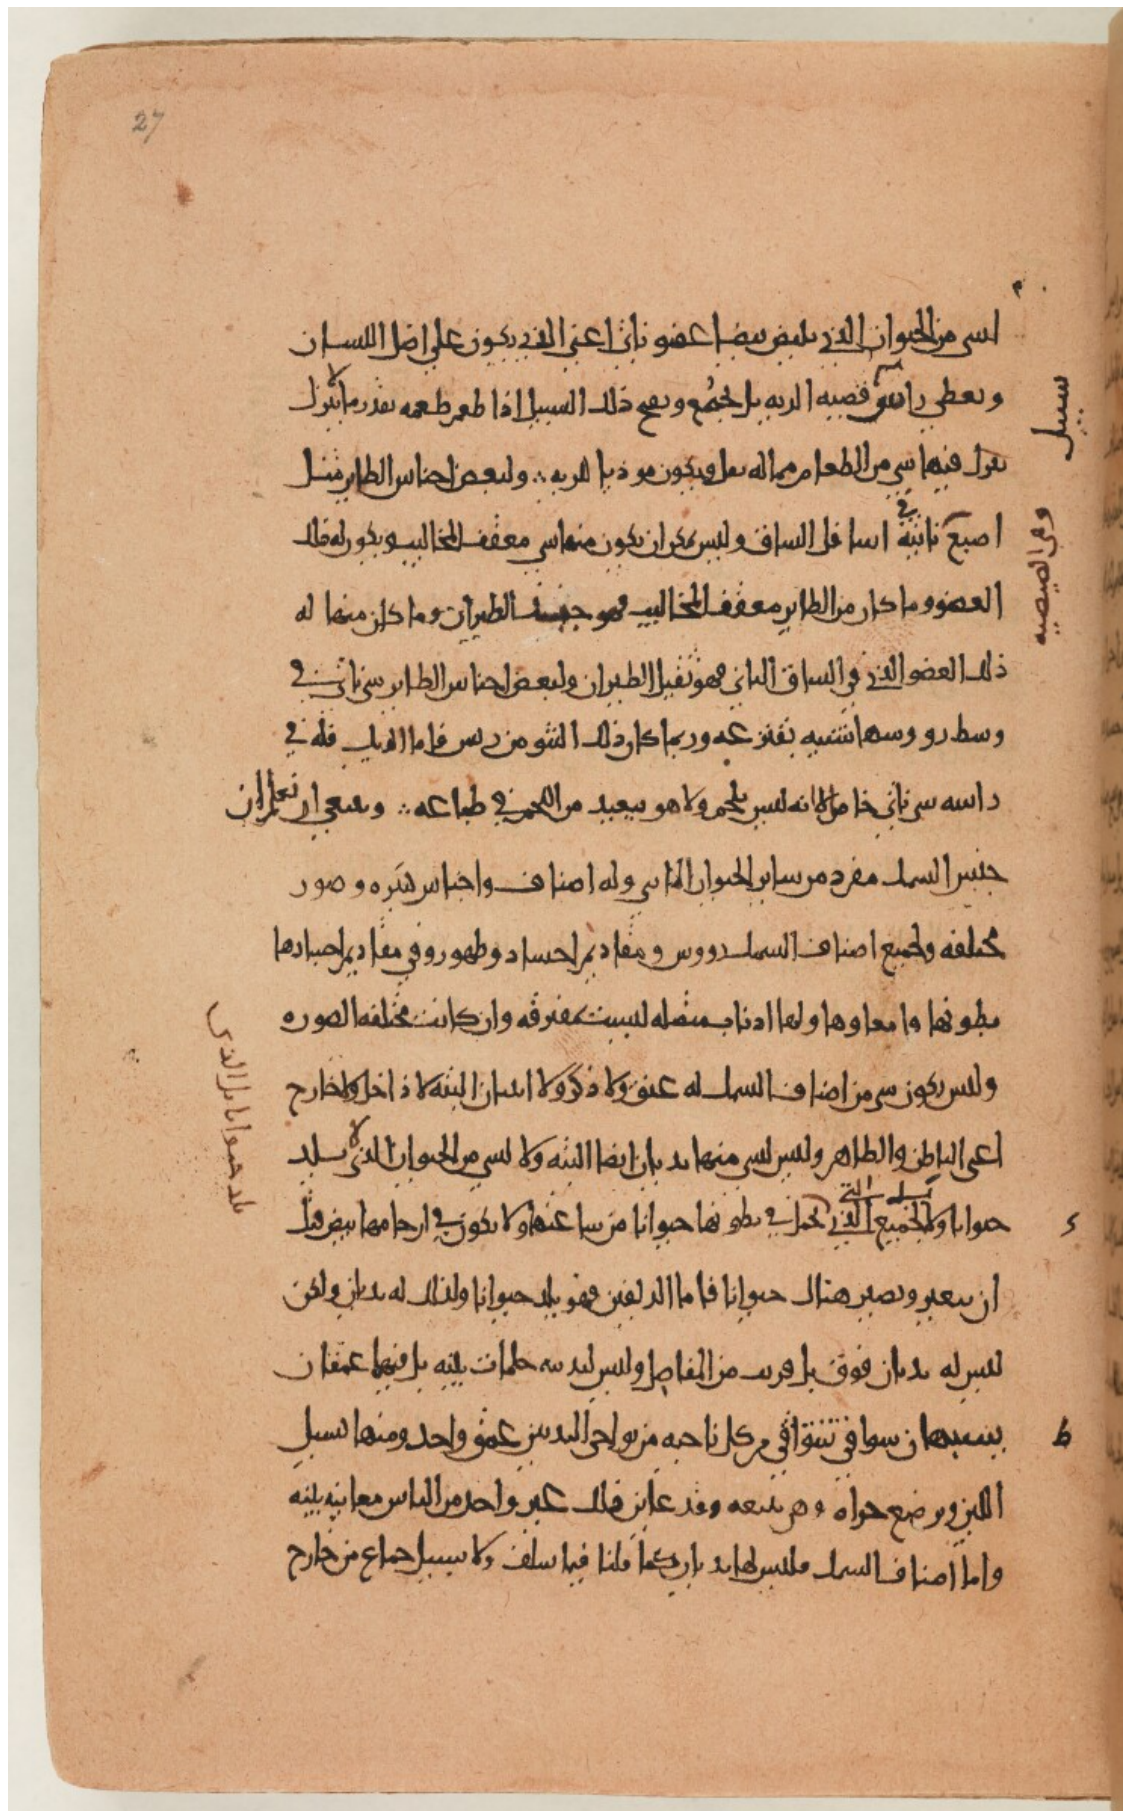 27
لشي من الحيوان الذي يبيض بيضا عضو ناتئ اعني الذي يكون على اصل اللسان
ويغطي راس قصبه الريه بل يجمع ويفتح ذلك السبيل اذا طعم طعمه بقدر ما لا ينزل
سبيل
ينزل فيها شي من الطعام مما له ثقل ويكون موذيا للريه ∴ ولبعض اجناس الطاير مثل
اصبع ناتئة في اسافل الساق وليس يمكن ان يكون منها شي معقف المخاليب ويكون له ذلك
وهي الصيصيه
العضو وما كان من الطاير معقف المخاليب فهو جيد الطيران وما كان منها له
ذلك العضو الذي في الساق الناتي فهو ثقيل الطيران ولبعض اجناس الطاير شي ناتئ في
وسط رووسها شبيه بقنزعه وربما كان ذلك النتو من ريش فاما الديك فله في
راسه شي ناتئ خاص الا انه ليس بلحم ولا هو ببعيد من اللحم في طباعه ∴ وينبغي ان تعلم ان
جنس السمك مفرد من ساير الحيوان الماسي وله اصناف واجناس كثيره وصور
مختلفه ولجميع اصناف السمك رووس ومقاديم اجساد وظهور وفي مقاديم اجسادها
بطونها وامعاوها ولها اذناب متصله ليست بمفترقه وان كانت مختلفه الصوره
وليس يكون شي من اصناف السمك له عنق ولا ذكر ولا انثيان البته لا داخل ولا خارج
اعني الباطن والظاهر وليس لشي منها ثديان ايضا البته ولا لشي من الحيوان الذي لا يلد
يلد حيوانا بل الذي
حيوانا ولا لجميع الذي التي تلد يحمل في بطونها حيوانا من ساعتها ولا يكون في ارحامها بيض قبل
ان يتغير ويصير هناك حيوانا فاما الدلفين فهو يلد حيوانا ولذلك له ثديان ولكن
ليس له ثديان فوق بل قريب من المفاصل وليس لثدييه حلمات بينه بل فيها عمقان
ط
يشبهان سواقي تنتواقي من كل ناحيه من نواحي الثديين عمق واحد ومنها يسيل
اللبن ويرضع جراه وهي تتبعه وقد عاين ذلك غير واحد من الناس معاينه بينه
واما اصناف السمك فليس لها ثديان كما قلنا فيما سلف ولا سبيل جماع من خارج